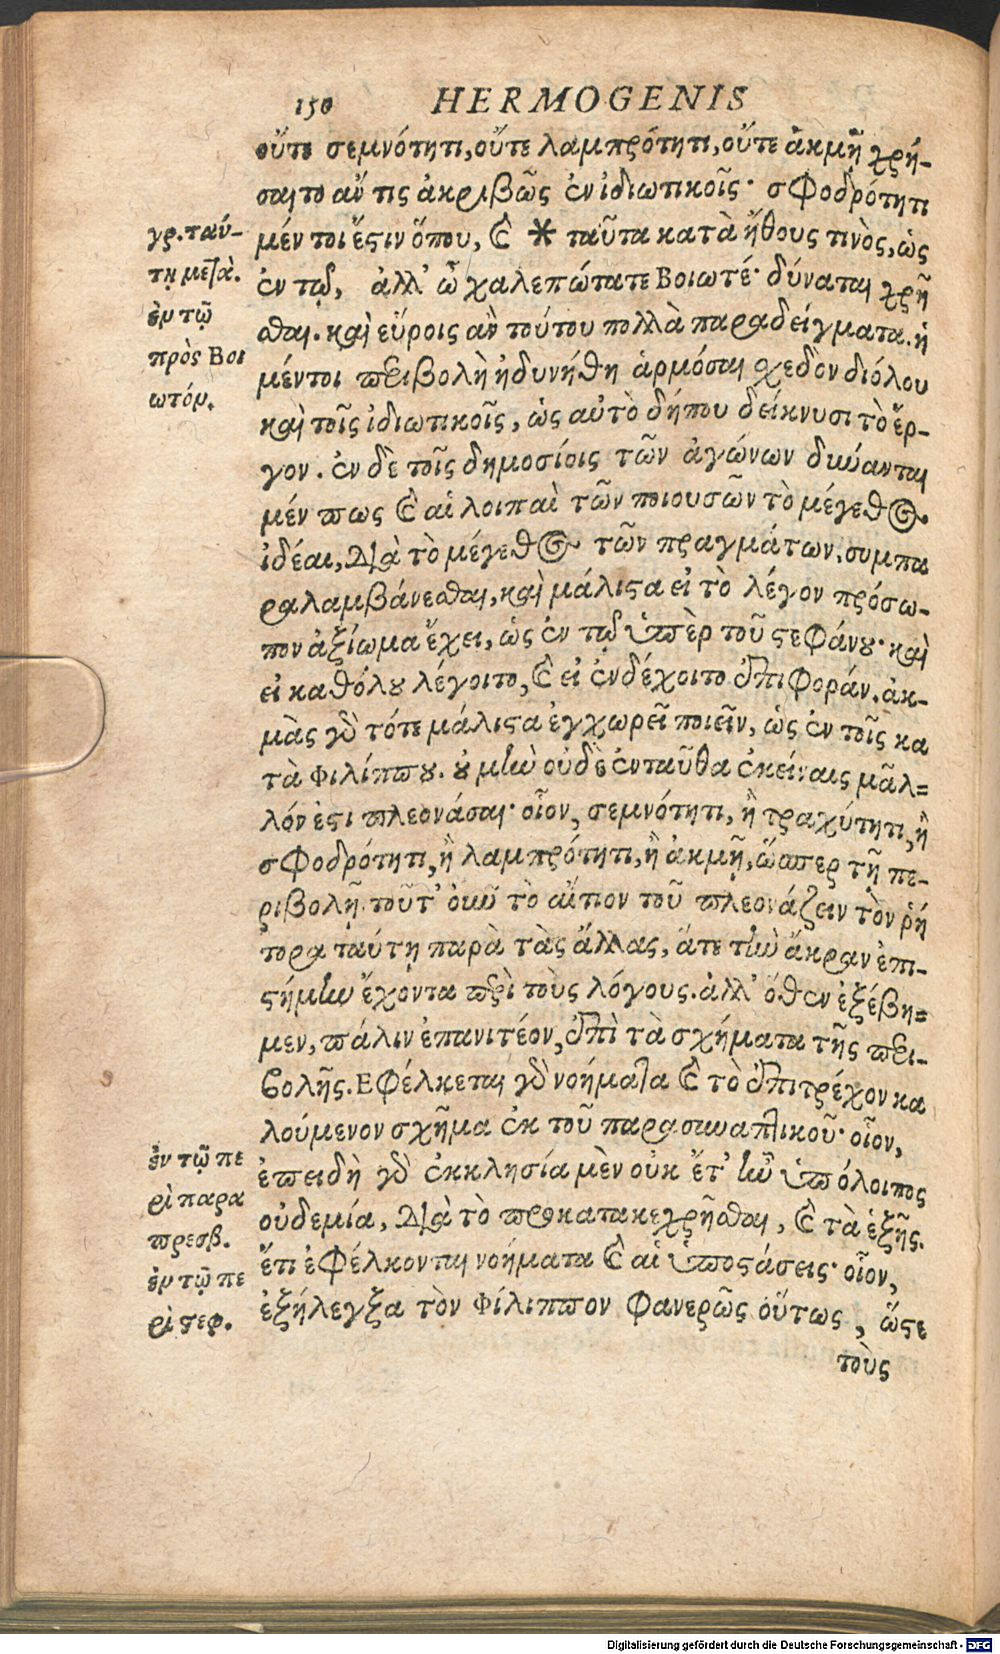 150 HERMOGENIS
οὔτε σεμνότητι, οὔτε λαμπρότητι, οὔτε ἀκμῇ χρή-
σαιτο ἄν τις ἀκριβῶς ἐν ἰδιωτικοῖς· σφοδρότητι
μέν τοι ἔστιν ὅπου, καὶ * ταῦτα κατὰ ἤθους τινὸς, ὡς
ἐν τῷ, ἀλλ' ὦ χαλεπώτατε Βοιωτέ· δύναται χρῆ
σθαι. καὶ εὕροις ἂν τούτου πολλὰ παραδείγματα. ἡ
μέντοι περιβολὴ ἠδυνήθη ἁρμόσαι σχεδὸν διόλου
καὶ τοῖς ἰδιωτικοῖς, ὡς αὐτὸ δήπου δείκνυσι τὸ ἔρ-
γον. ἐν δὲ τοῖς δημοσίοις τῶν ἀγώνων δύνανται
μέν πως καὶ αἱ λοιπαὶ τῶν ποιουσῶν τὸ μέγεθος
ἰδέαι, διὰ τὸ μέγεθος τῶν πραγμάτων, συμπα
ραλαμβάνεσθαι, καὶ μάλιστα εἰ τὸ λέγον πρόσω-
πον ἀξίωμα ἔχει, ὡς ἐν τῷ ὑπὲρ τοῦ στεφάνου· καὶ
εἰ καθόλου λέγοιτο, καὶ εἰ ἐνδέχοιτο ἐπιφοράν. ἀκ-
μὰς γὰρ τότε μάλιστα ἐγχωρεῖ ποιεῖν, ὡς ἐν τοῖς κα
τὰ Φιλίππου. οὐ μὴν οὐδὲ ἐνταῦθα ἐκείναις μᾶλ=
λόν ἐστι πλεονάσαι· οἷον, σεμνότητι, ἢ τραχύτητι, ἢ
σφοδρότητι, ἢ λαμπρότητι, ἢ ἀκμῇ, ὥσπερ τῇ πε-
ριβολῇ. τοῦτ' οὖν τὸ αἴτιον τοῦ πλεονάζειν τὸν ῥή
τορα ταύτῃ παρὰ τὰς ἄλλας, ἅτε τὴν ἄκραν ἐπι-
στήμην ἔχοντα περὶ τοὺς λόγους. ἀλλ' ὅθεν ἐξέβη=
μεν, πάλιν ἐπανιτέον, ἐπὶ τὰ σχήματα τῆς περι-
βολῆς. Εφέλκεται γὰρ νοήματα καὶ τὸ ἐπιτρέχον κα
λούμενον σχῆμα ἐκ τοῦ παρασιωπητικοῦ· οἷον,
ἐπειδὴ γὰρ ἐκκλησία μὲν οὐκ ἔτ' ἦν ὑπόλοιπος
οὐδεμία, διὰ τὸ προκατακεχρῆσθαι, καὶ τὰ ἑξῆς.
ἔτι ἐφέλκονται νοήματα καὶ αἱ ὑποστάσεις· οἷον,
ἐξήλεγξα τὸν Φίλιππον φανερῶς οὕτως, ὥστε
τοὺς
γρ. ταύ-
τῃ μετὰ.
ἐν τῷ
πρὸς Βοι
ωτόν.
ἐν τῷ πε
ρὶ παρα
πρεσβ.
ἐν τῷ πε
ρὶ στεφ.
Digitalisierung gefördert durch die Deutsche Forschungsgemeinschaft - DFG